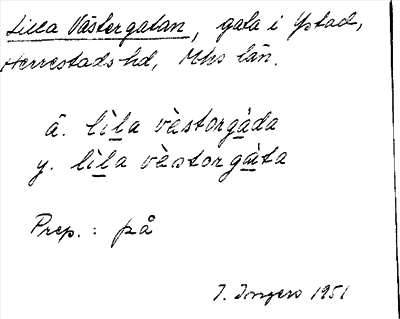 Lilla Västergatan, gata i Ystad,
Herrestads hd, Mhs län.
ä. lìla vèstorgàda
y. lìla vèstorgàta
Prep.: på
I. Ingers 1951